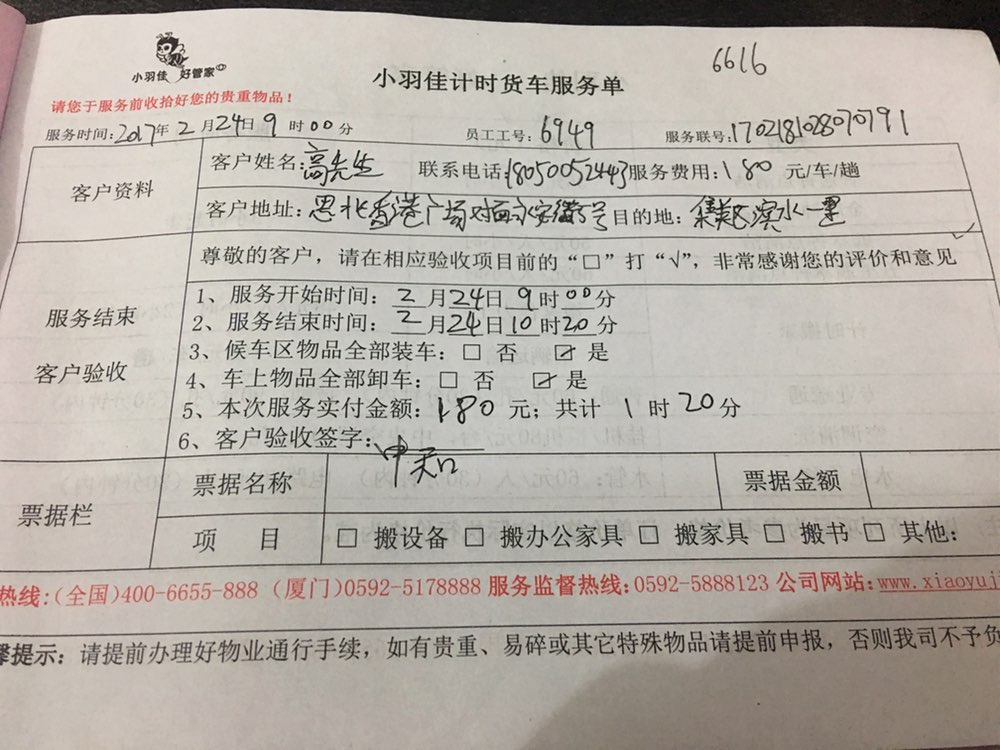 6616
小羽佳 好管家
小羽佳计时货车服务单
请您于服务前收拾好您的贵重物品！
服务时间：2017年2月24日9时00分 员工工号：6949 服务联号：1702181028070791
客户资料
客户姓名：高先生 联系电话：18050052443 服务费用：180元/车/趟
客户地址：思北香港广场对面永安街号 目的地：集美区滨水一里
服务结束
客户验收
尊敬的客户，请在相应验收项目前的“□”打“√”，非常感谢您的评价和意见
1、服务开始时间：2月24日9时00分
2、服务结束时间：2月24日10时20分
3、候车区物品全部装车：□ 否 ☑ 是
4、车上物品全部卸车：□ 否 ☑ 是
5、本次服务实付金额：180元；共计1时20分
6、客户验收签字：
票据栏
票据名称 票据金额
项 目 □ 搬设备 □ 搬办公家具 □ 搬家具 □ 搬书 □ 其他：
热线:(全国)400-6655-888 (厦门)0592-5178888 服务监督热线:0592-5888123 公司网站:www.xiaoyuj
提示：请提前办理好物业通行手续，如有贵重、易碎或其它特殊物品请提前申报，否则我司不予负